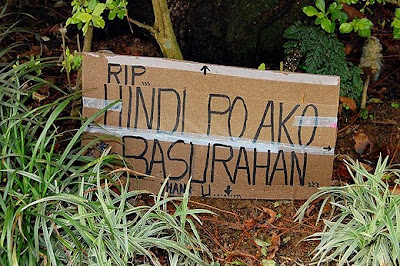 RIP...
HINDI PO AKO
BASURAHAN...